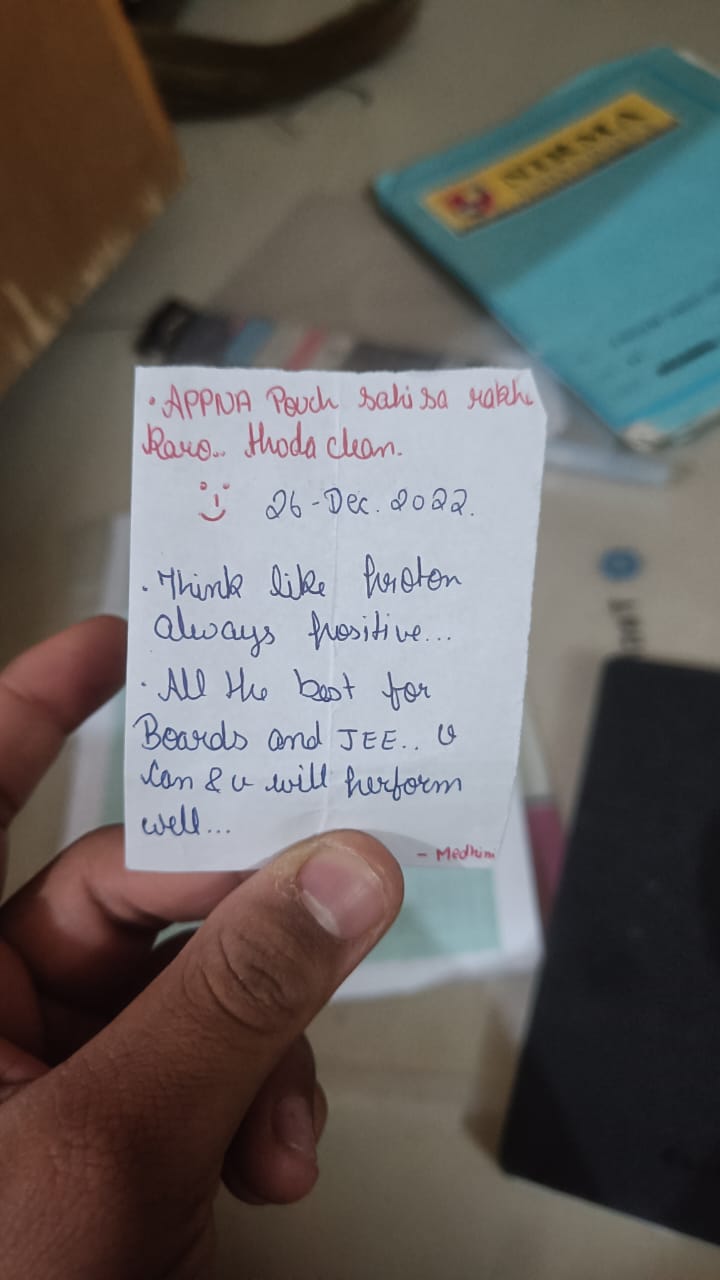 · APPNA Pouch sahi sa rakha
Karo.. thoda clean.
26-Dec. 2022.
· Think like proton
always positive...
· All the best for
Boards and JEE.. U
Can & u will perform
well...
- Medhini
NIRMA